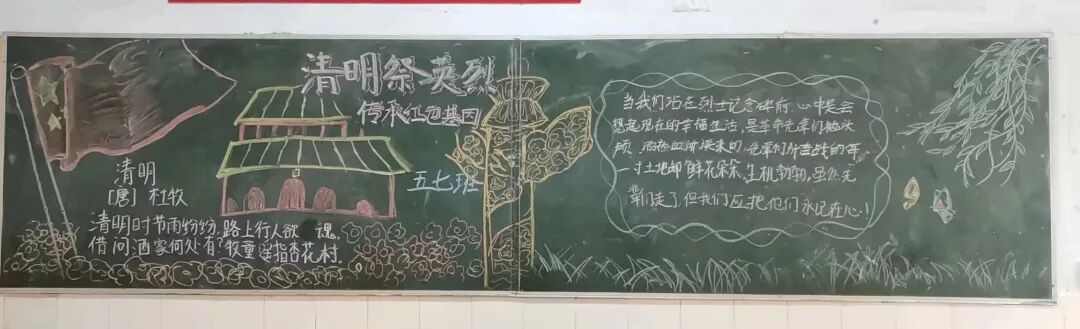 清明祭英烈
传承红色基因
五七班
清明
[唐] 杜牧
清明时节雨纷纷,路上行人欲 魂。
借问酒家何处有?牧童遥指杏花村.
当我们站在烈士记念碑前,心中是会
想起现在的幸福生活,是革命先辈们抛头
颅 洒热血 换来的,先辈们所奋战的每
一寸土地都鲜花朵朵、生机勃勃,虽然先
辈们走了,但我们应把他们永记在心!